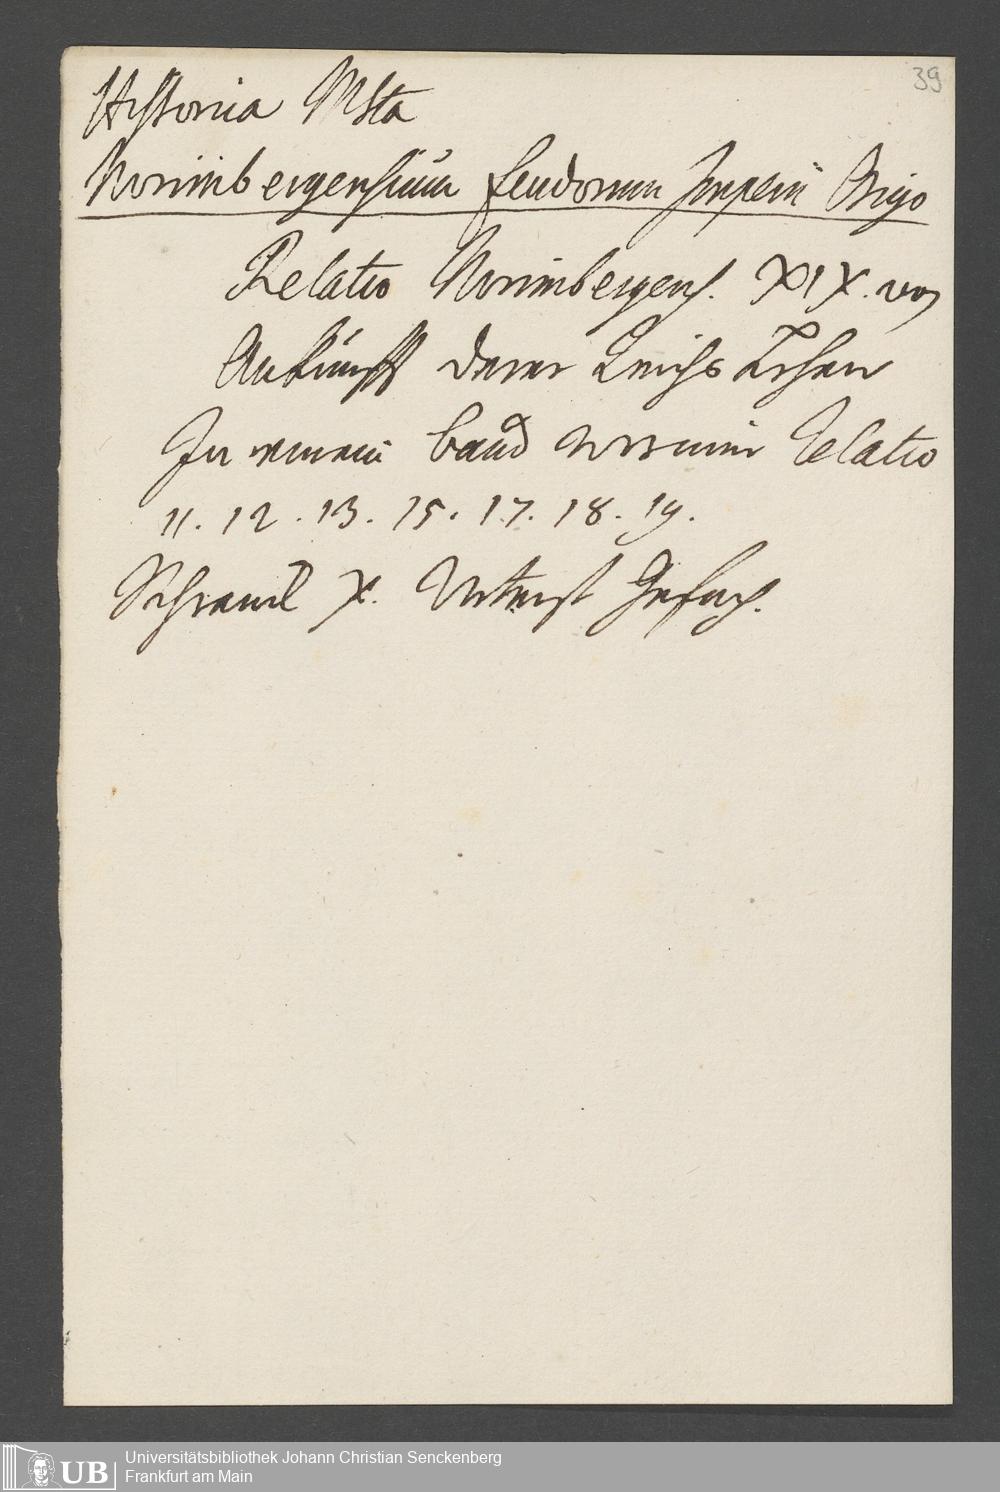 39
Historia Msta
Norimbergensium feudorum Imperii Origo
Relatio Norimbergens. XIX. von
Ankunfft derer Reichs Lehen
In einem band worinnen Relatio
11. 12. 13. 15. 17. 18. 19.
Schranck X. Unterst Gefach.
UB
Universitätsbibliothek Johann Christian Senckenberg
Frankfurt am Main